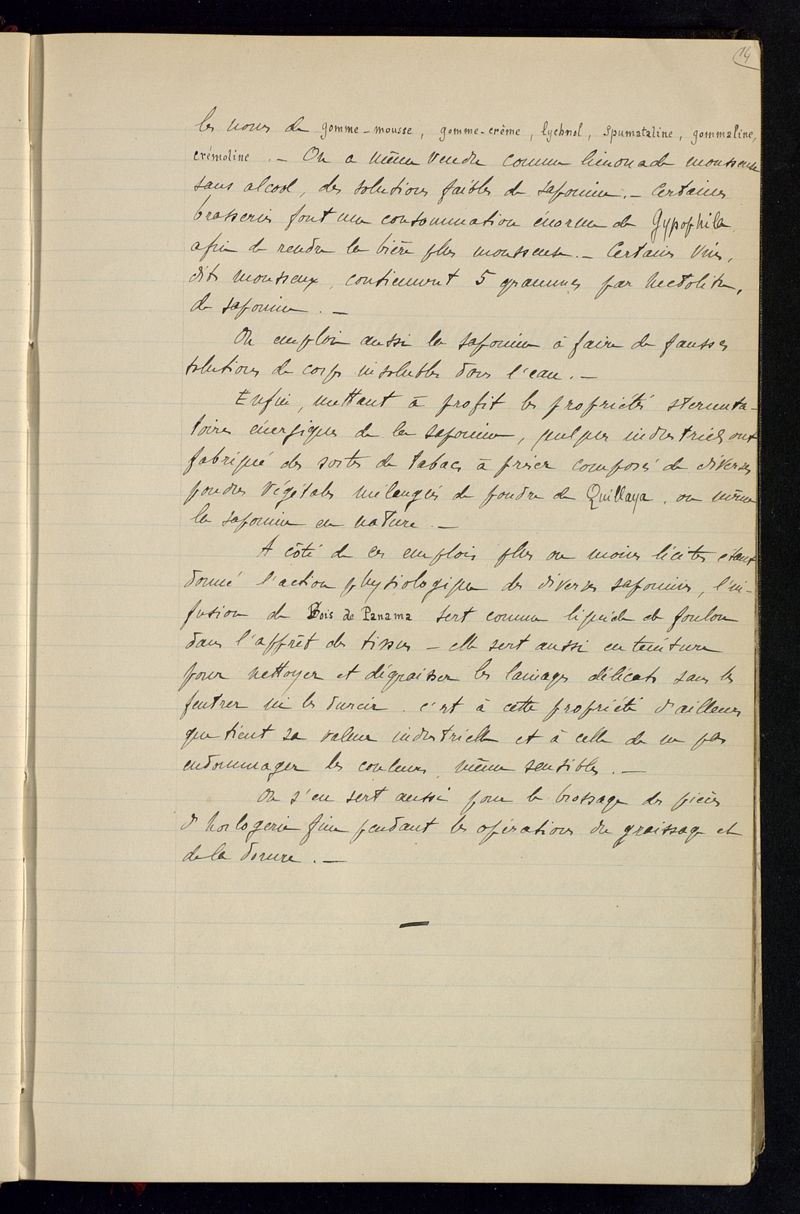 14
les noms de gomme-mousse, gomme-crème, lychnol, spumataline, gommaline,
crémoline. — On a même vendu comme limonade mousseuse
sans alcool, des solutions faibles de saponine. — Certaines
brasseries font une consommation énorme de Gypophila
afin de rendre la bière plus mousseuse. — Certains vins,
dits mousseux, contiennent 5 grammes par hectolitre,
de saponine. —
On emploie aussi la saponine à faire de fausses
solutions de corps insolubles dans l'eau. —
Enfin, mettant à profit les propriétés sternuta-
toires énergiques de la saponine, quelques industriels ont
fabriqué des sortes de tabacs à priser composés de diverses
poudres végétales mélangées de poudre de Quillaya, ou même
la saponine en nature. —
A côté de ces emplois plus ou moins licites étant
donné l'action physiologique des diverses saponines, l'in-
fusion de Bois de Panama sert comme liquide de foulon
dans l'apprêt des tissus — elle sert aussi en teinture
pour nettoyer et dégraisser les lainages délicats sans les
feutrer ni les durcir. c'est à cette propriété d'ailleurs
que tient sa valeur industrielle et à celle de ne pas
endommager les couleurs, même sensibles. —
On s'en sert aussi pour le brossage des pièces
d'horlogerie fine pendant les opérations du graissage et
de la dorure. —